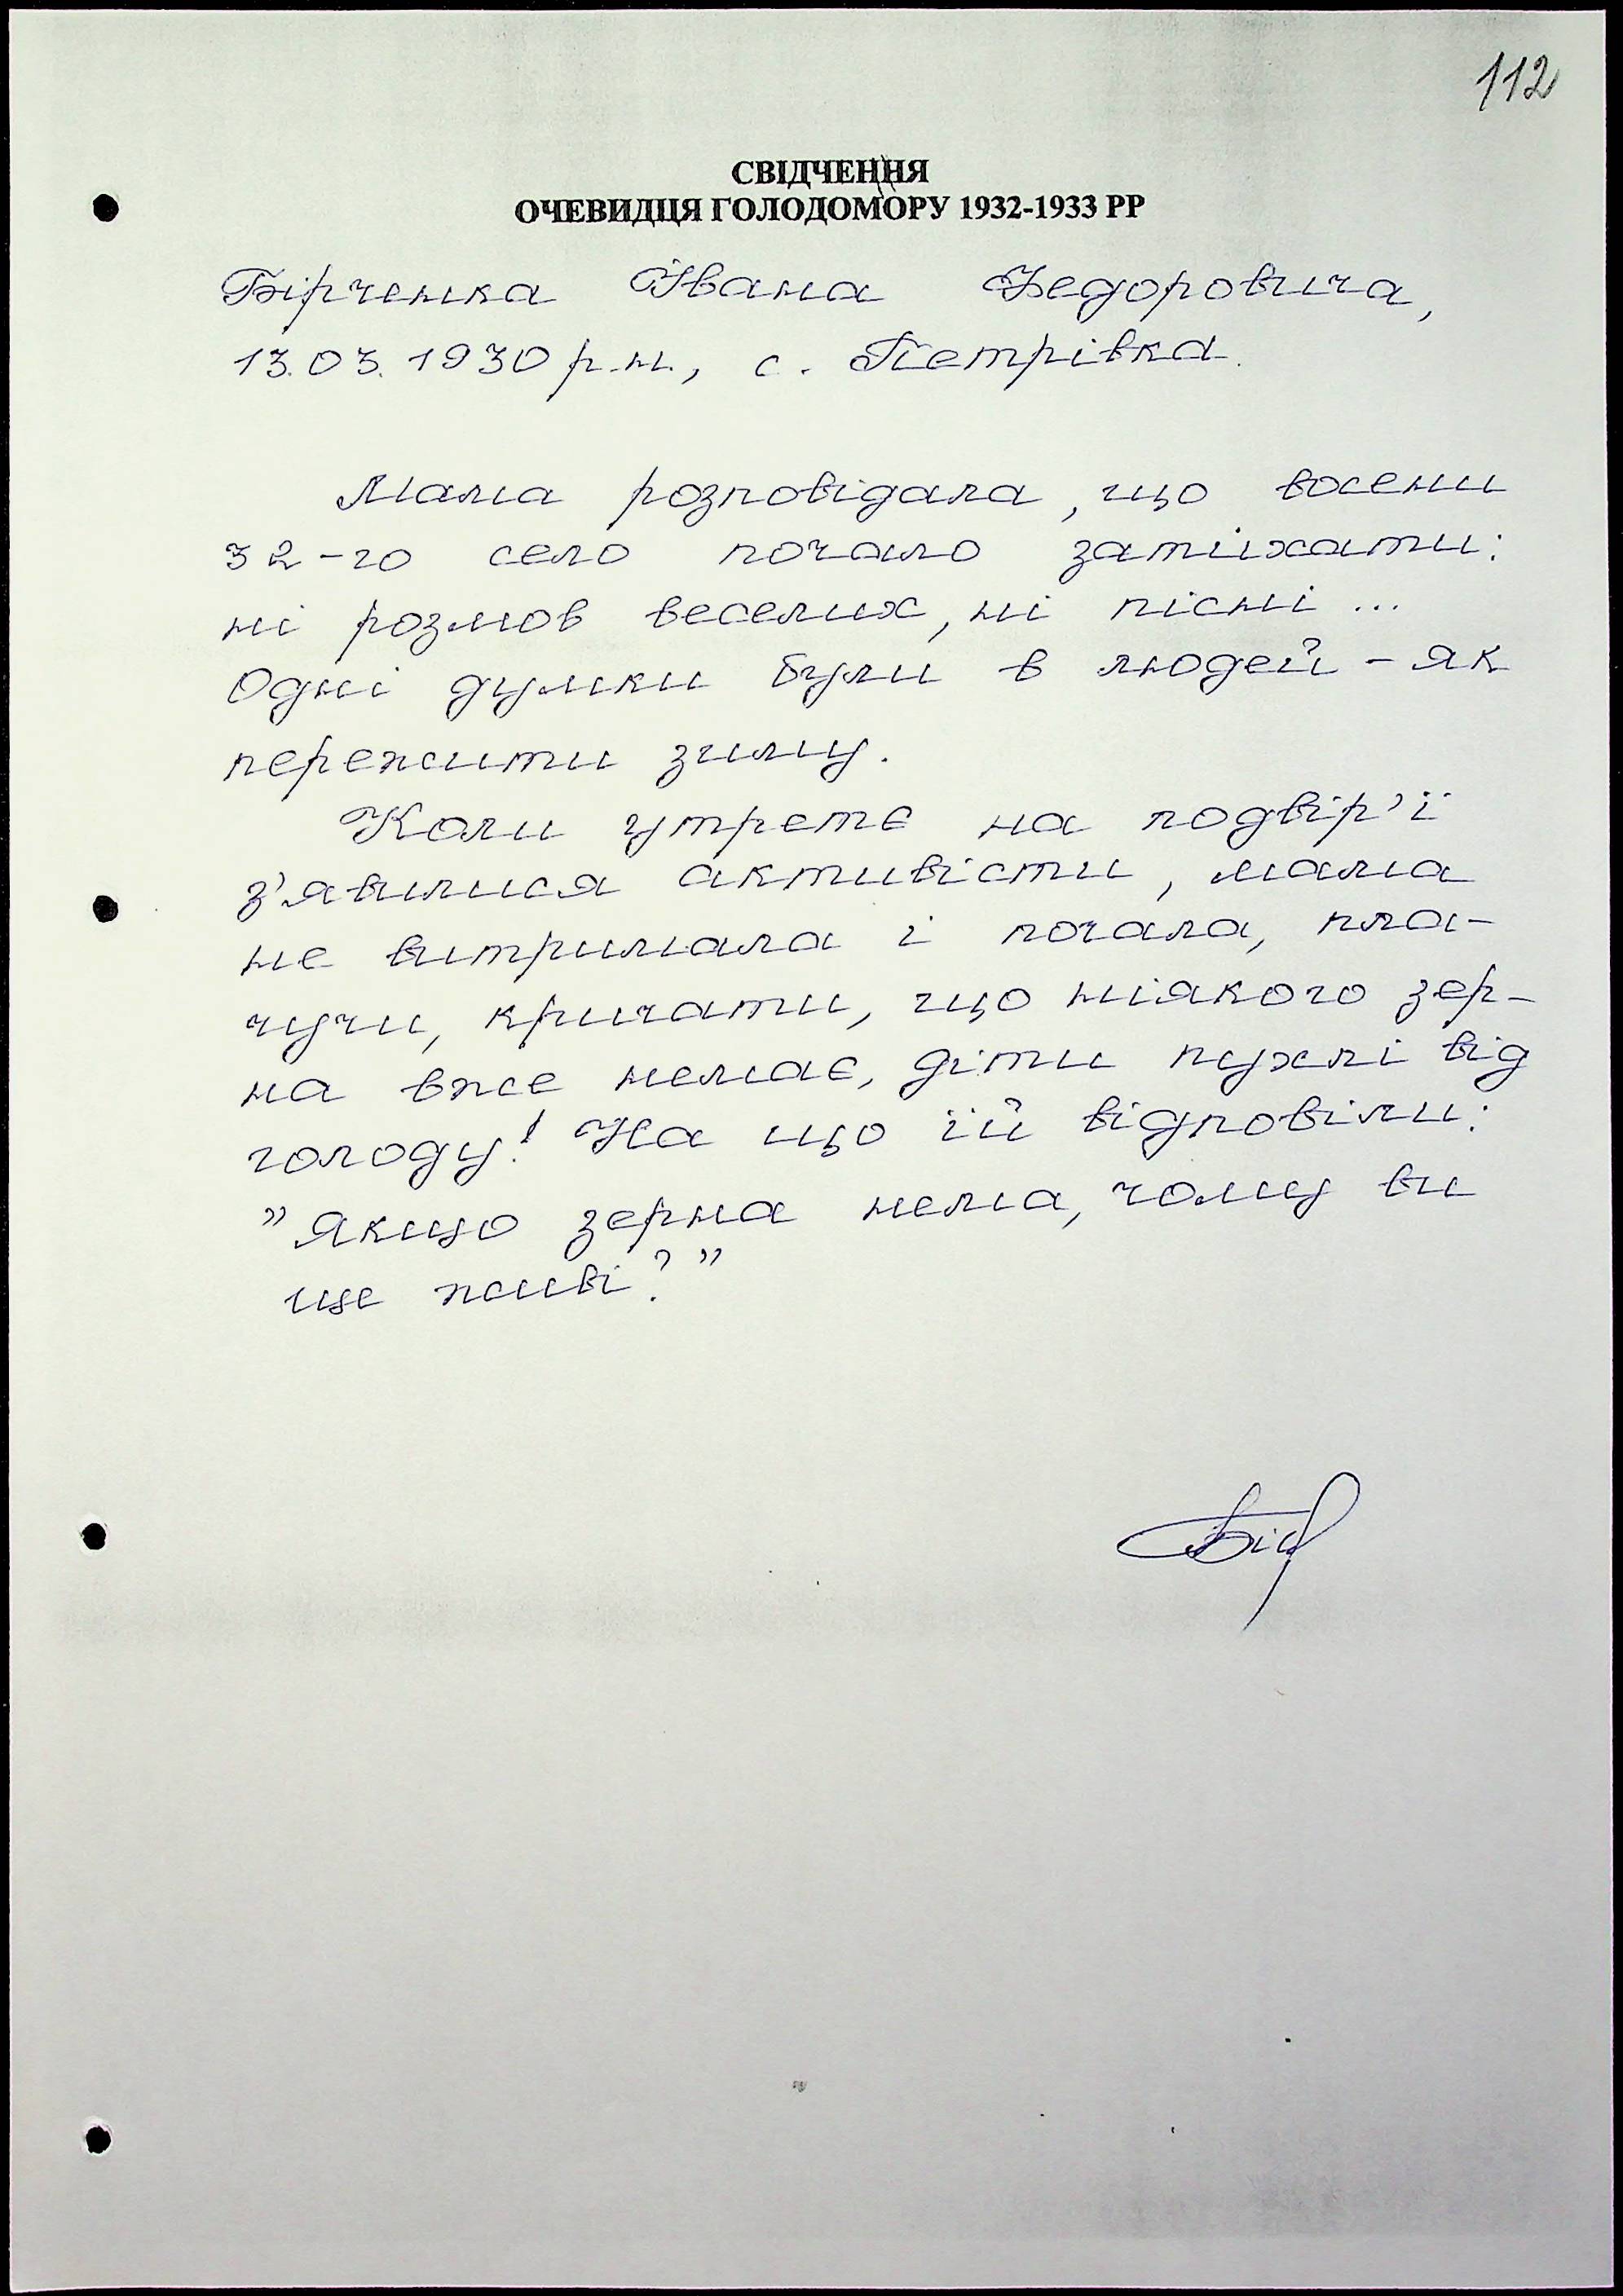 112
СВІДЧЕННЯ
ОЧЕВИДЦЯ ГОЛОДОМОРУ 1932-1933 РР
Бірченка Івана Федоровича,
13.03.1930 р.н., с. Петрівка.
Мама розповідала, що восени
32-го село почало затіхати:
ні розмов веселих, ні пісні...
Одні думки були в людей - як
пережити зиму.
Коли утретє на подвір'ї
з'явилися активісти, мама
не витримала і почала, пла-
чучи, кричати, що ніякого зер-
на вже немає, діти пухлі від
голоду! На що їй відповіли:
"Якщо зерна нема, чому ви
ще живі?"
Бір